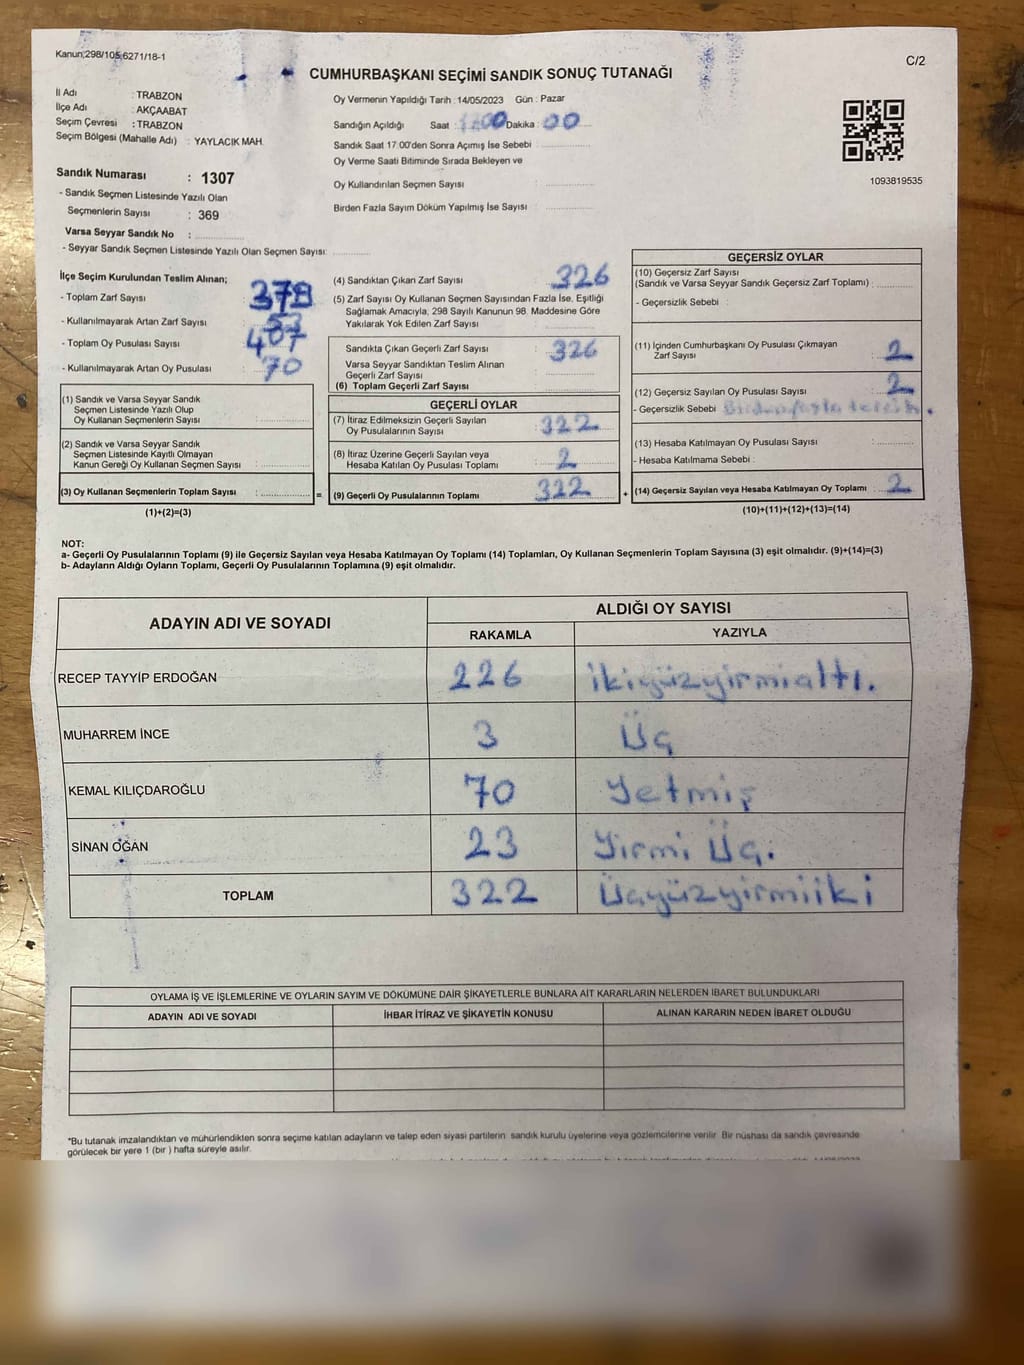 Kanun;298/105,6271/18-1
C/2
CUMHURBAŞKANI SEÇİMİ SANDIK SONUÇ TUTANAĞI
İl Adı : TRABZON
İlçe Adı : AKÇAABAT
Seçim Çevresi : TRABZON
Seçim Bölgesi (Mahalle Adı) : YAYLACIK MAH.
Oy Vermenin Yapıldığı Tarih : 14/05/2023 Gün : Pazar
Sandığın Açıldığı Saat : Dakika : 00
Sandık Saat 17.00'den Sonra Açımış İse Sebebi :
Oy Verme Saati Bitiminde Sırada Bekleyen ve
Oy Kullandırılan Seçmen Sayısı :
Birden Fazla Sayım Döküm Yapılmış İse Sayısı :
1093819535
Sandık Numarası : 1307
- Sandık Seçmen Listesinde Yazılı Olan
Seçmenlerin Sayısı : 369
Varsa Seyyar Sandık No :
- Seyyar Sandık Seçmen Listesinde Yazılı Olan Seçmen Sayısı:
İlçe Seçim Kurulundan Teslim Alınan;
- Toplam Zarf Sayısı :
- Kullanılmayarak Artan Zarf Sayısı : 53
- Toplam Oy Pusulası Sayısı :
- Kullanılmayarak Artan Oy Pusulası : 70
(1) Sandık ve Varsa Seyyar Sandık
Seçmen Listesinde Yazılı Olup
Oy Kullanan Seçmenlerin Sayısı :
(2) Sandık ve Varsa Seyyar Sandık
Seçmen Listesinde Kayıtlı Olmayan
Kanun Gereği Oy Kullanan Seçmen Sayısı :
(3) Oy Kullanan Seçmenlerin Toplam Sayısı : =
(1)+(2)=(3)
(4) Sandıktan Çıkan Zarf Sayısı : 326
(5) Zarf Sayısı Oy Kullanan Seçmen Sayısından Fazla İse, Eşitliği
Sağlamak Amacıyla, 298 Sayılı Kanunun 98. Maddesine Göre
Yakılarak Yok Edilen Zarf Sayısı :
Sandıkta Çıkan Geçerli Zarf Sayısı : 326
Varsa Seyyar Sandıktan Teslim Alınan
Geçerli Zarf Sayısı :
(6) Toplam Geçerli Zarf Sayısı :
GEÇERLİ OYLAR
(7) İtiraz Edilmeksizin Geçerli Sayılan
Oy Pusulalarının Sayısı : 322
(8) İtiraz Üzerine Geçerli Sayılan veya
Hesaba Katılan Oy Pusulası Toplamı : 2
(9) Geçerli Oy Pusulalarının Toplamı : 322 +
GEÇERSİZ OYLAR
(10) Geçersiz Zarf Sayısı
(Sandık ve Varsa Seyyar Sandık Geçersiz Zarf Toplamı) :
- Geçersizlik Sebebi :
(11) İçinden Cumhurbaşkanı Oy Pusulası Çıkmayan
Zarf Sayısı : 2
(12) Geçersiz Sayılan Oy Pusulası Sayısı : 2
- Geçersizlik Sebebi : Birden fazla tercih.
(13) Hesaba Katılmayan Oy Pusulası Sayısı :
- Hesaba Katılmama Sebebi :
(14) Geçersiz Sayılan veya Hesaba Katılmayan Oy Toplamı : 2
(10)+(11)+(12)+(13)=(14)
NOT:
a- Geçerli Oy Pusulalarının Toplamı (9) ile Geçersiz Sayılan veya Hesaba Katılmayan Oy Toplamı (14) Toplamları, Oy Kullanan Seçmenlerin Toplam Sayısına (3) eşit olmalıdır. (9)+(14)=(3)
b- Adayların Aldığı Oyların Toplamı, Geçerli Oy Pusulalarının Toplamına (9) eşit olmalıdır.
ADAYIN ADI VE SOYADI ALDIĞI OY SAYISI
RAKAMLA YAZIYLA
RECEP TAYYİP ERDOĞAN 226 ikiyüzyirmialtı.
MUHARREM İNCE 3 Üç
KEMAL KILIÇDAROĞLU 70 Yetmiş
SİNAN OĞAN 23 Yirmi Üç.
TOPLAM 322 Üçyüzyirmiiki
OYLAMA İŞ VE İŞLEMLERİNE VE OYLARIN SAYIM VE DÖKÜMÜNE DAİR ŞİKAYETLERLE BUNLARA AİT KARARLARIN NELERDEN İBARET BULUNDUKLARI
ADAYIN ADI VE SOYADI İHBAR İTİRAZ VE ŞİKAYETİN KONUSU ALINAN KARARIN NEDEN İBARET OLDUĞU
*Bu tutanak imzalandıktan ve mühürlendikten sonra seçime katılan adayların ve talep eden siyasi partilerin sandık kurulu üyelerine veya gözlemcilerine verilir. Bir nüshası da sandık çevresinde
görülecek bir yere 1 (bir ) hafta süreyle asılır.